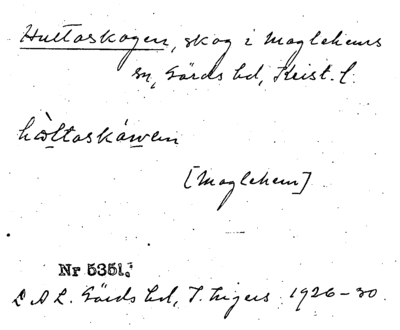 Hultaskogen, skog i Maglehems
sn, Gärds hd, Krist. l.
hòltaskáwen
[Maglehem]
Nr 5351.
D A L. Gärds hd, I. Ingers 1926–30.